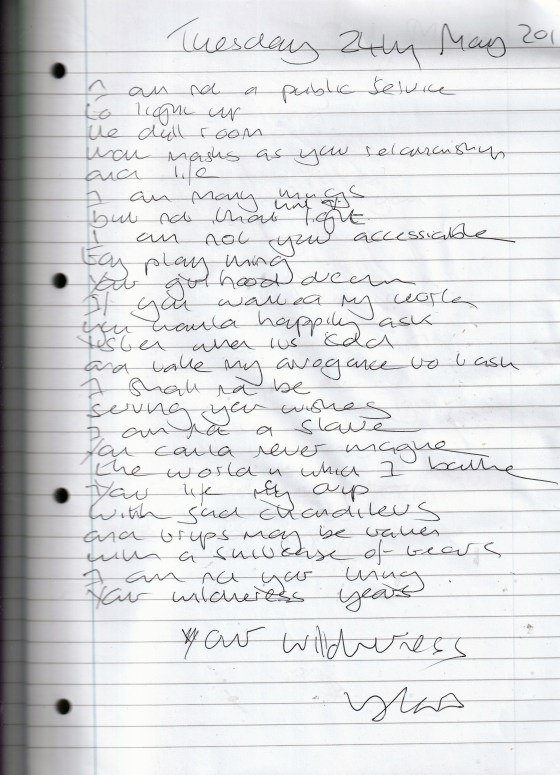 Tuesday 24th May 201
I am not a public service
to light up
the dull room
that masks as your relationship
and life
I am many things
but not that light
I am not your accessible
toy play thing
Your girlhood dream
If you wanted my world
you would happily ask
and take my arrogance to task
I shall not be
serving your wishes
I am not a slave
You could never imagine
the world in which I bathe
Your life
with sad chandeliers
and trips may be taken
with a suitcase of tears
I am not your thing
Your wilderness years
Your wilderness
years